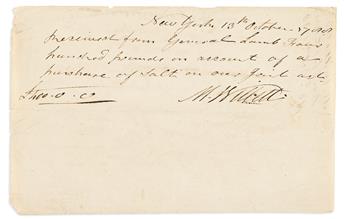 New York 13th October 17
Received from General Lamb Four
hundred pounds on account of a
purchase of Salt on our joint act
£400.0.00 M. Willett